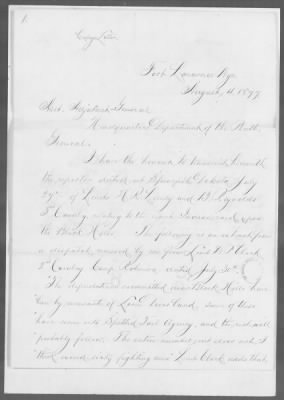 Copy Letter
Fort Laramie Wyo
August 4, 1877
Asst. Adjutant General
Headquarters Department of the Platte
General:
I have the honor to
the reports dated at Deadwood Dakota, July
of Lieuts H. R. Lemly and
3" Cavalry, relating to the upon
the Black Hills. The following is an extract from
a dispatch received by me from Lieut W. P. Clark
2" Cavalry Camp Robinson, dated July 30".
"The depredations committed near Black Hills have
been by remnants of Lame Deer's band, some of these
have come into Spotted Tail Agency, and the rest will
probably follow. The entire number, not
sixty fighting men" Lieut Clark adds that,